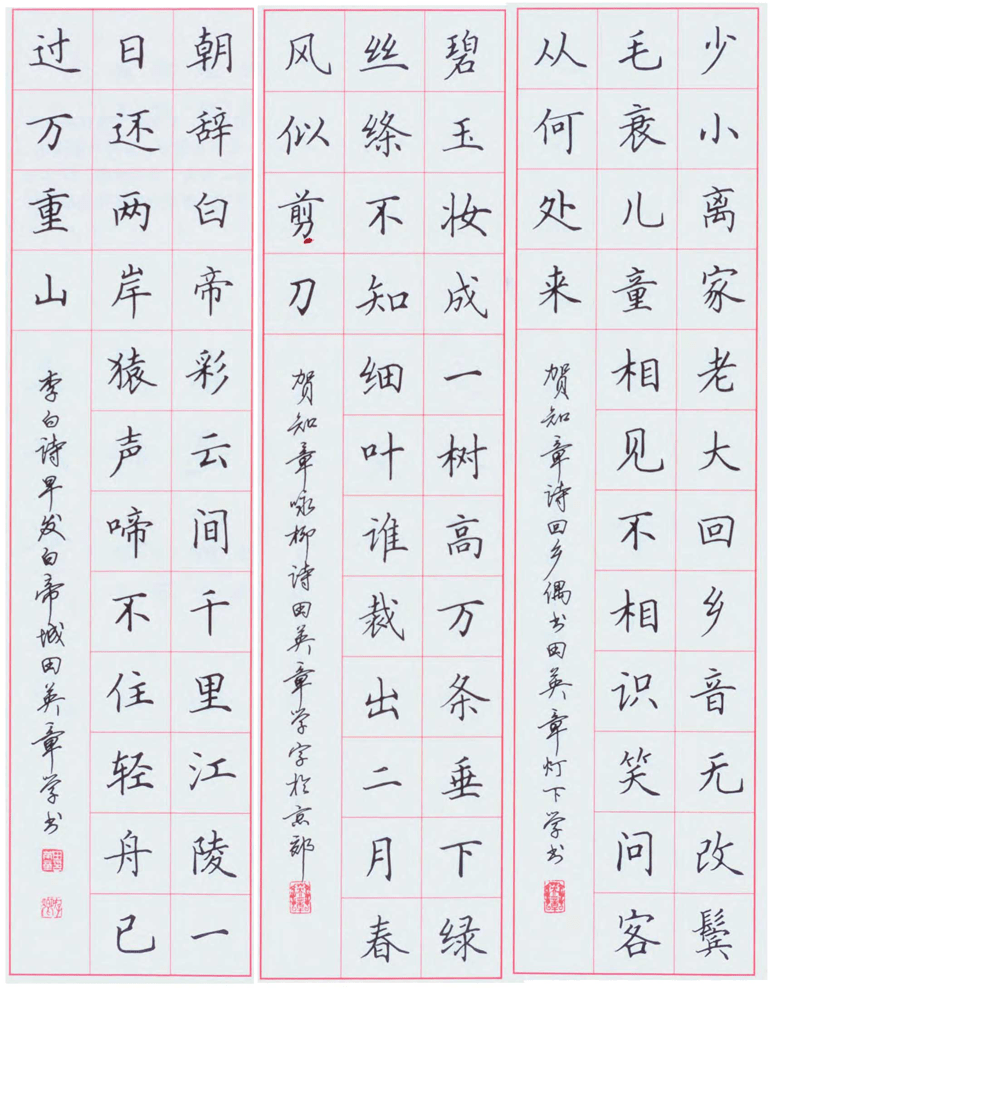 少小离家老大回乡音无改鬓
毛衰儿童相见不相识笑问客
从何处来
贺知章诗回乡偶书田英章灯下学书
碧玉妆成一树高万条垂下绿
丝绦不知细叶谁裁出二月春
风似剪刀
贺知章咏柳诗田英章学字于京郊
朝辞白帝彩云间千里江陵一
日还两岸猿声啼不住轻舟已
过万重山
李白诗早发白帝城田英章学书